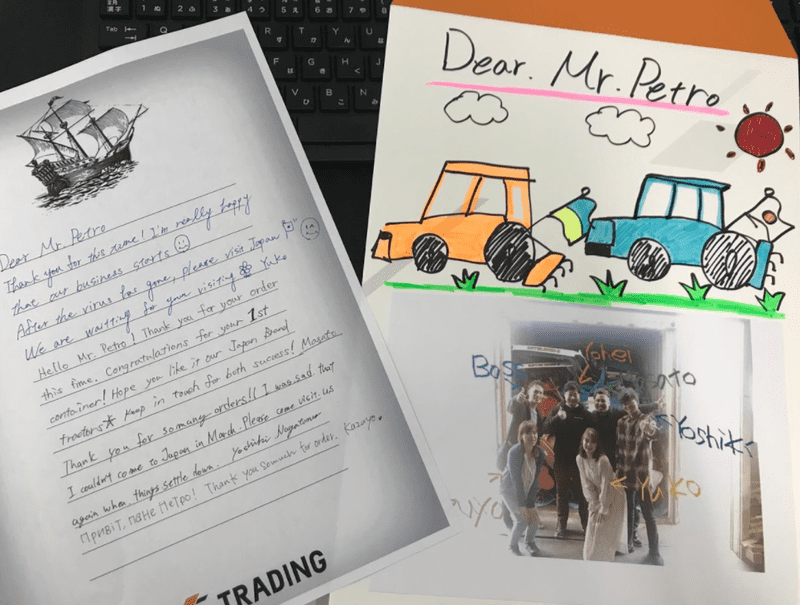 Dear Mr Petro
Thank you for this time! I'm really happy
that our business starts
After the virus has gone, please visit Japan
We are waiting for your visiting Yuko
Hello Mr. Petro! Thank you for your order
this time. Congratulations for your 1st
container! Hope you like it our Japan Brand
tractors* Keep in touch for both success! Masato
Thank you for so many orders!! I was sad that
I couldn't come to Japan in March. Please come visit us
again when things settle down. Yoshiki Nagatomo
Привіт, пане Петро! Thank you so much for order. Kazuyo
TRADING
Dear. Mr. Petro
Yohei
Boss
Yoshiki
Yuko